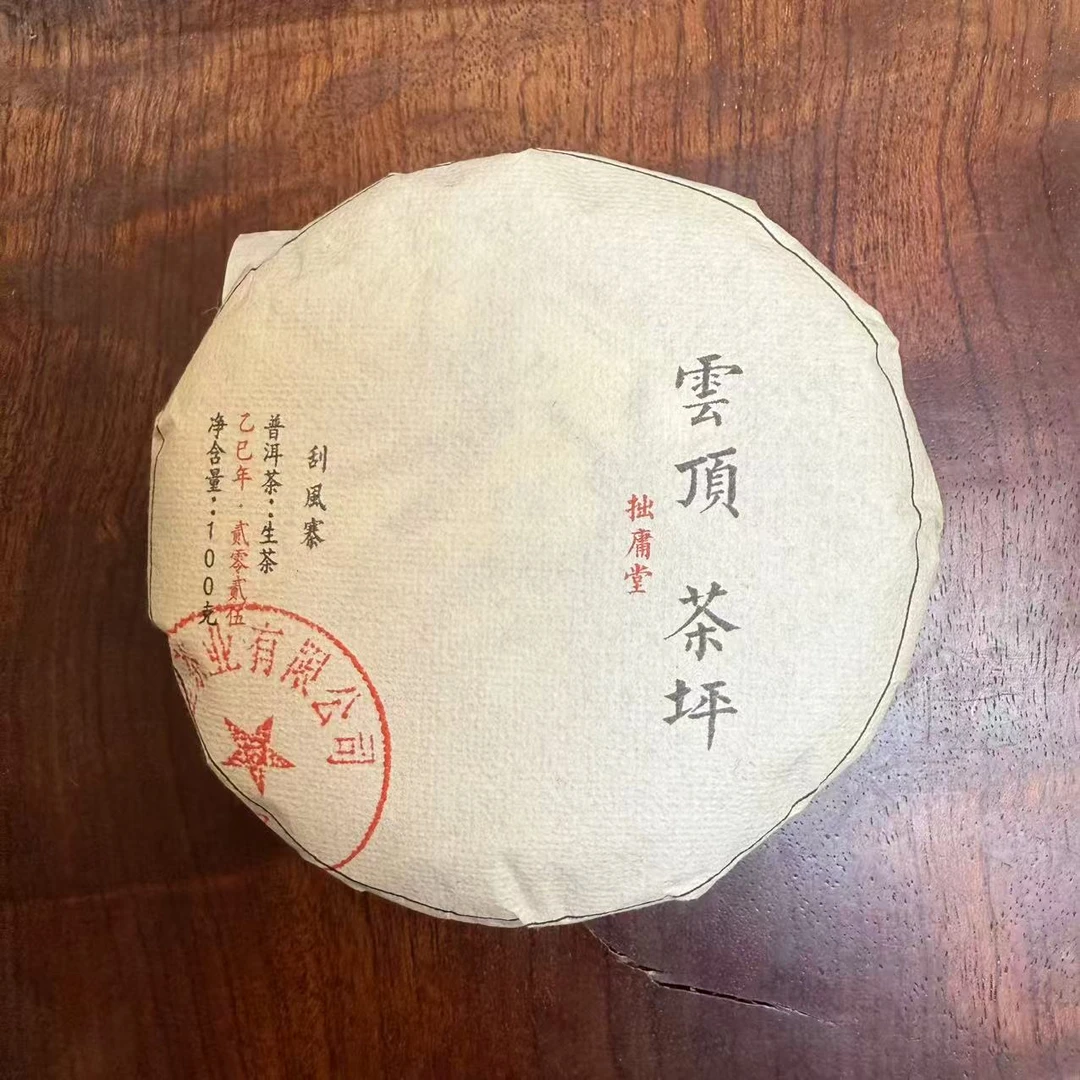 雲頂 茶坪
拙庸堂
刮風寨
普洱茶：生茶
乙巳年·貳零貳伍
净含量：100克
业有限公司